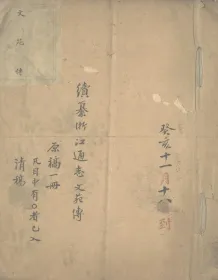 癸亥十一月十八到
續纂浙江通志文苑傳
原稿一冊
凡目中有○者已入
清稿
文苑傳